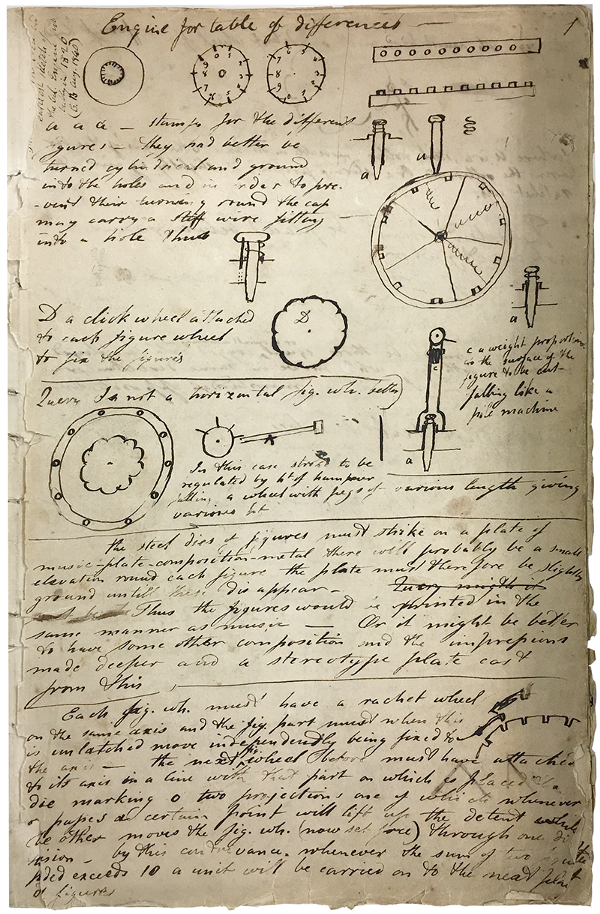 Engine for table of differences —
1
a a a — stamps for the different
figures — they had better be
turned cylindrical and ground
into the holes and in order to pre-
-vent their turning round the cap
may carry a stiff wire fitting
into a hole thus
a
a
a
D a click wheel attached
to each figure wheel
to fix the figures
D
c a weight proportion
to the surface of the
figure to be cut
falling like a
pile machine
c
a
Query Is not a horizontal fig. wh. better
In this case stroke to be
regulated by ht of hammer
falling a wheel with pegs of various length giving
various ht
the steel dies of figures must strike on a plate of
music-plate-composition-metal there will probably be a small
elevation round each figure the plate must therefore be slightly
ground until these dis appear — Query might it
Thus the figures would be printed in the
same manner as music — Or it might be better
to have some other composition and the impressions
made deeper and a stereotype plate cast
from this
Each fig. wh. must have a rachet wheel
on the same axis and the fig part must when this
is unlatched move independently being fixed to
the axis — the next wheel before must have attached
to its axis in a line with that part on which is placed the
die marking 0 two projections one of which whenever
passes a certain point will lift up the detent while
the other moves the fig. wh. (now set free) through one di
vision — by this contrivance whenever the sum of two figures
added exceeds 10 a unit will be carried on to the next place
of figures